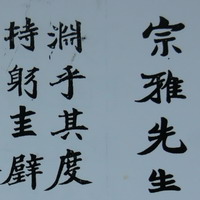 宗雅先生
淵乎其度
持躬圭璧